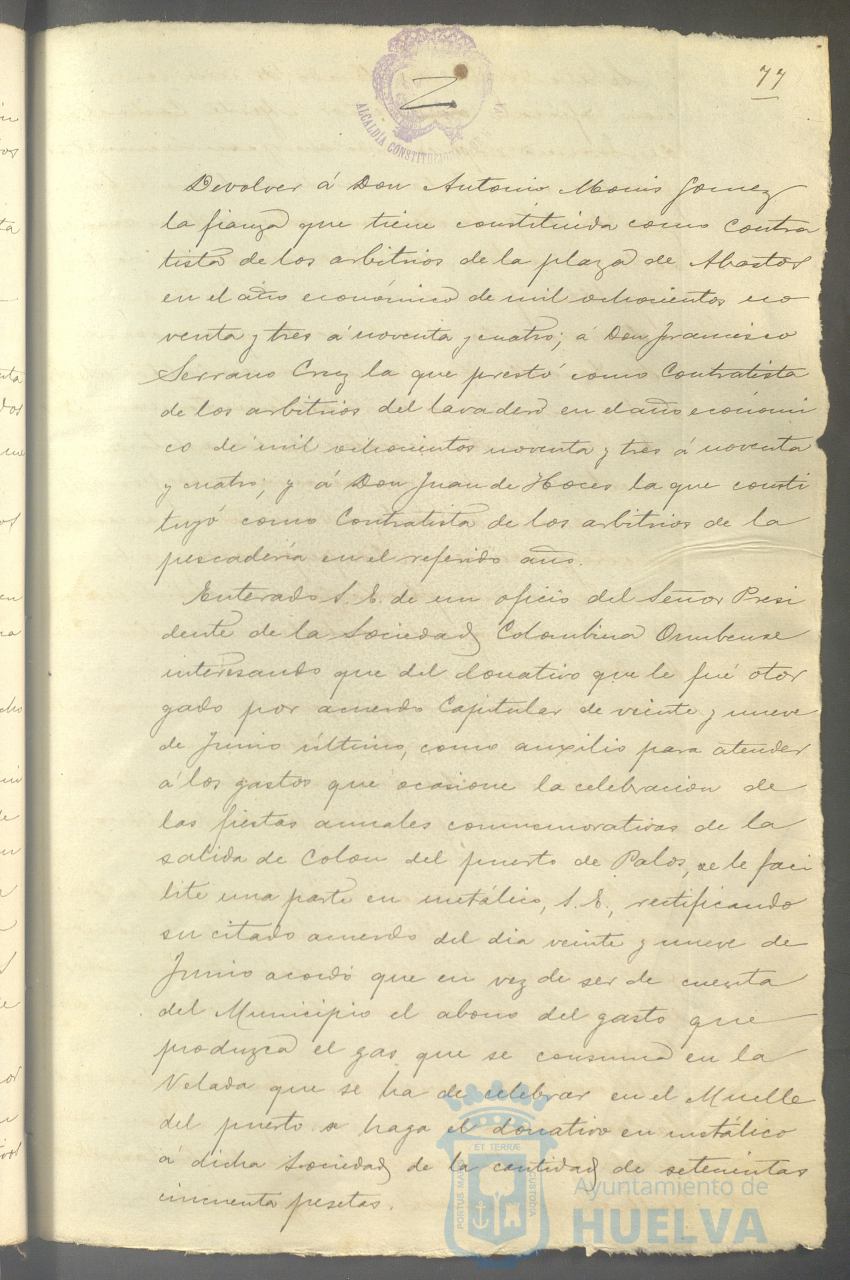 77
ALCALDÍA CONSTITUCIONAL DE
Devolver á Don Antonio Gomez
la fianza que tiene constituida como Contra
tista de los arbitrios de la plaza de Abastos
en el año económico de mil ochocientos no
venta y tres á noventa y cuatro; á Don Francisco
Serrano Cruz la que prestó como Contratista
de los arbitrios del lavadero en el año económi
co de mil ochocientos noventa y tres á noventa
y cuatro; y á Don Juan de Hoces la que consti
tuyó como Contratista de los arbitrios de la
pescadería en el referido año.
Enterado S. E. de un oficio del Señor Presi
dente de la Sociedad Colombina Onubense
interesando que del donativo que le fué otor
gado por acuerdo Capitular de veinte y nueve
de Junio último, como auxilio para atender
á los gastos que ocasione la celebracion de
las fiestas anuales conmemorativas de la
salida de Colon del puerto de Palos, se le faci
lite una parte en metálico, S. E., rectificando
su citado acuerdo del dia veinte y nueve de
Junio acordó que en vez de ser de cuenta
del Municipio el abono del gasto que
produzca el gas que se consuma en la
Velada que se ha de celebrar en el Muelle
del puerto se haga el donativo en metálico
á dicha Sociedad de la cantidad de setecientas
cincuenta pesetas.
PORTUS MARIS ET TERRÆ CUSTODIA
Ayuntamiento de
HUELVA